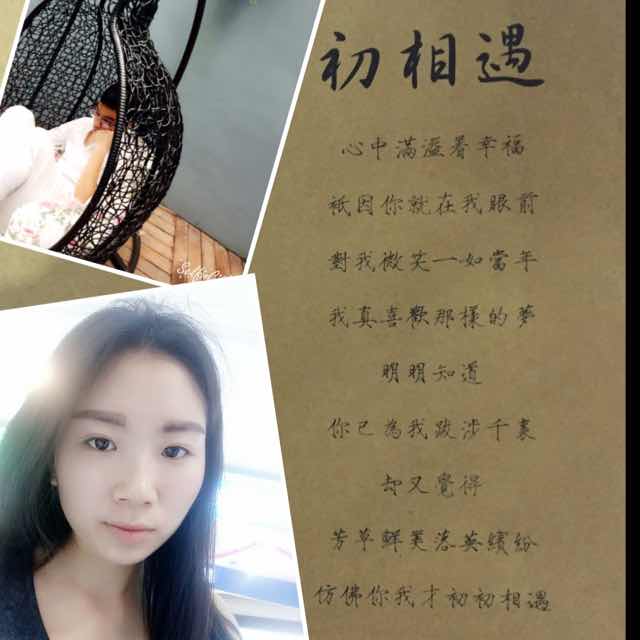 初相遇
心中滿溢著幸福
衹因你就在我眼前
對我微笑一如當年
我真喜歡那樣的夢
明明知道
你已為我跋涉千裏
却又覺得
芳草鮮美落英繽紛
仿佛你我才初初相遇